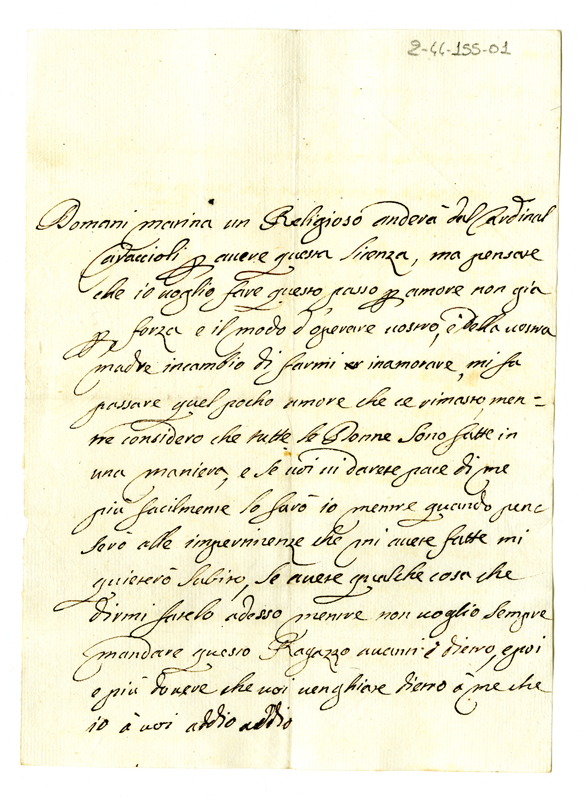 2-44-155-01
Domani marina un Religioso anderà dal Cardinal
Caraccioli p avere questa licenza, ma pensate
che io voglio fare questo passo p amore non gia
p forza e il modo d'operare vostro, e della vostra
madre incambio di farmi inamorare, mi fa
passare quel pocho amore che ce rimasto, men=
tre considero che tutte le Donne sono fatte in
una maniera, e se voi vi darete pace di me
più facilmente lo farò io mentre quando penc
serò alle impertinenze che mi avete fatte mi
quieterò subito, se avete qualche cosa che
dirmi fatelo adesso mentre non voglio sempre
mandare questo Ragazzo avanti è dietro, e poi
e più dovere che voi venghiate dietro à me che
io à voi addio addio